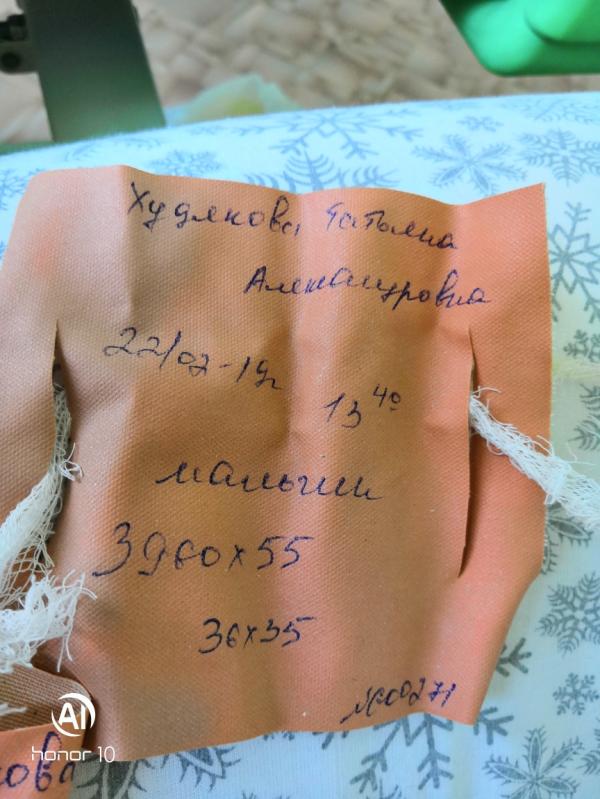 Худякова Татьяна
Александровна
22/02-19г
13⁴⁰
мальчик
3960х55
36х35
№00271
кова
AI
honor 10